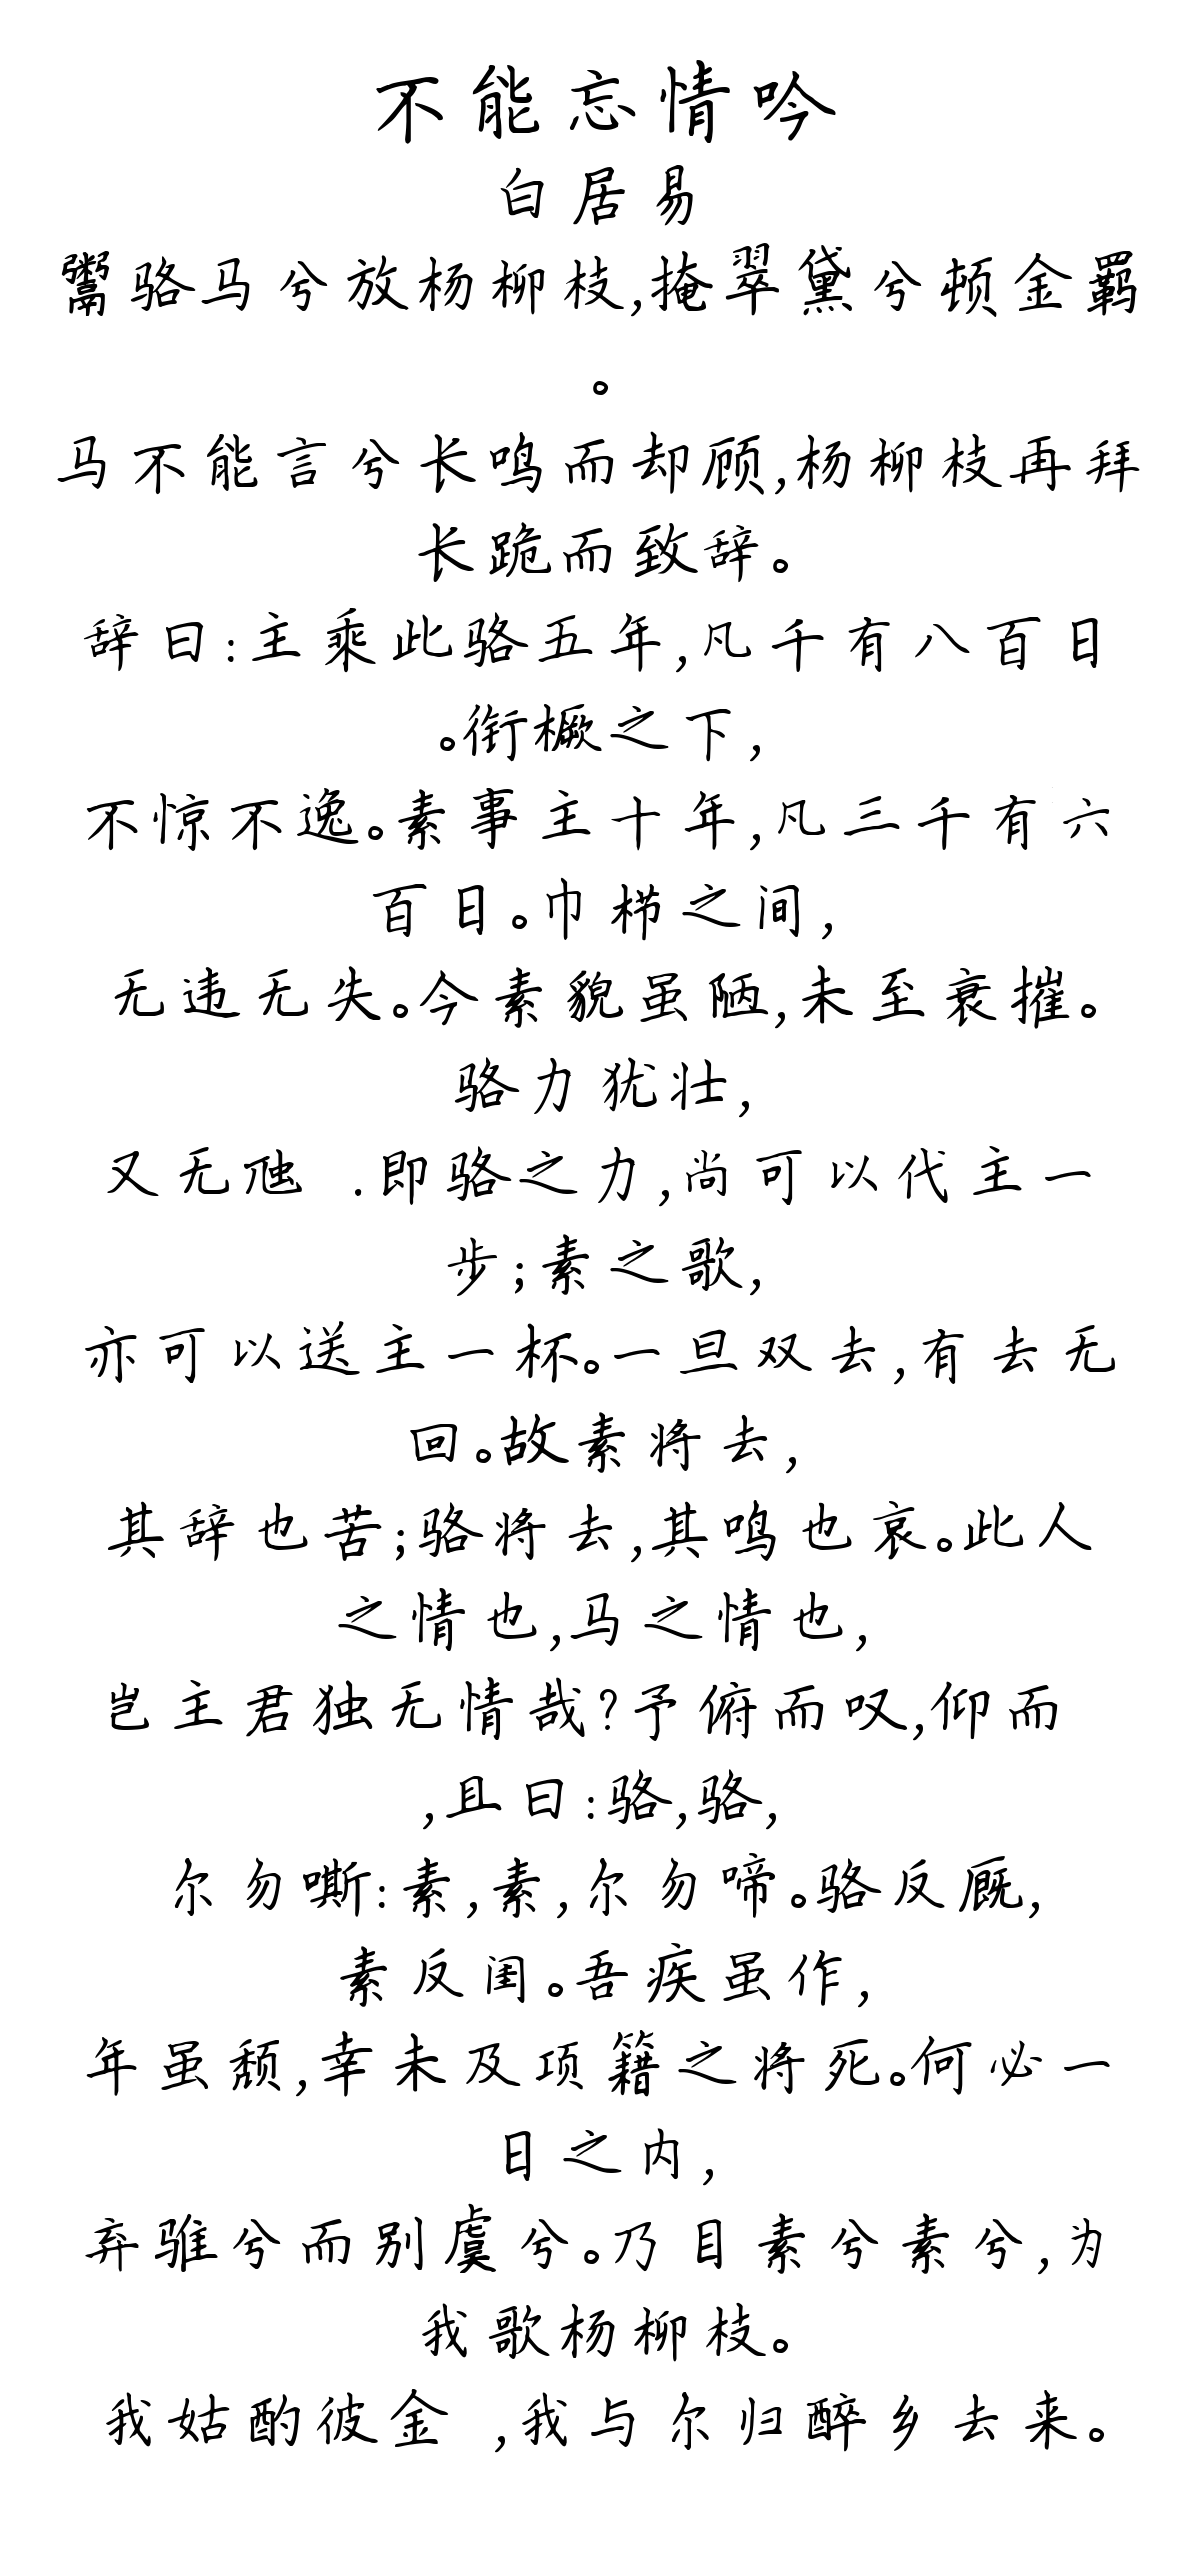 不能忘情吟
白居易
鬻骆马兮放杨柳枝,掩翠黛兮顿金羁
。
马不能言兮长鸣而却顾,杨柳枝再拜
长跪而致辞。
辞曰:主乘此骆五年,凡千有八百日
。衔橛之下,
不惊不逸。素事主十年,凡三千有六
百日。巾栉之间,
无违无失。今素貌虽陋,未至衰摧。
骆力犹壮,
又无虺 .即骆之力,尚可以代主一
步;素之歌,
亦可以送主一杯。一旦双去,有去无
回。故素将去,
其辞也苦;骆将去,其鸣也哀。此人
之情也,马之情也,
岂主君独无情哉?予俯而叹,仰而
,且曰:骆,骆,
尔勿嘶:素,素,尔勿啼。骆反厩,
素反闺。吾疾虽作,
年虽颓,幸未及项籍之将死。何必一
日之内,
弃骓兮而别虞兮。乃目素兮素兮,为
我歌杨柳枝。
我姑酌彼金 ,我与尔归醉乡去来。